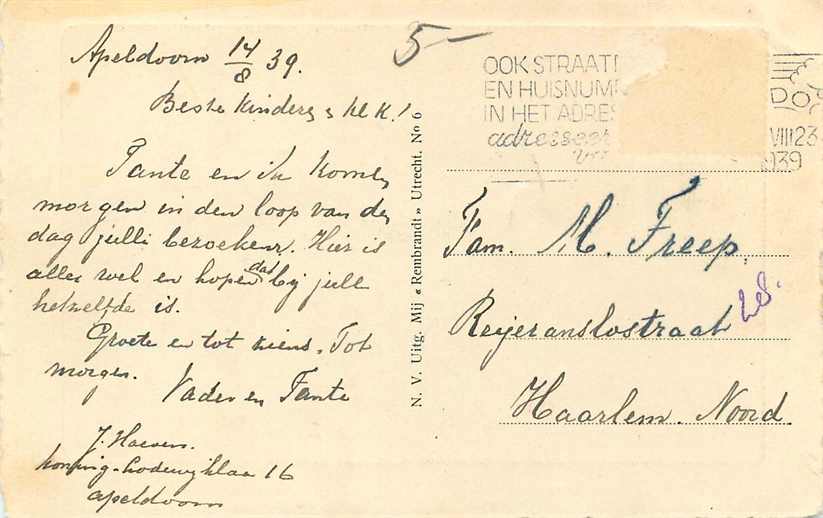 Apeldoorn 14/8 39.
Beste kinders, kl k!
Tante en ik komen
morgen in den loop van den
dag julli bezoeken. Hier is
alles wel en hopen dat bij julli
hetzelfde is.
Groete en tot ziens. Tot
morgen.
Vader en Tante
J. Hoeven.
Koning-Lodewijklaan 16
Apeldoorn
N. V. Uitg. Mij « Rembrandt » Utrecht. No 6
5-
OOK STRAAT
EN HUISNUM
IN HET ADRES
adresseer
VIII 23
1939
Fam. M. Freep,
Reijer Anslostraat 28.
Haarlem. Noord.